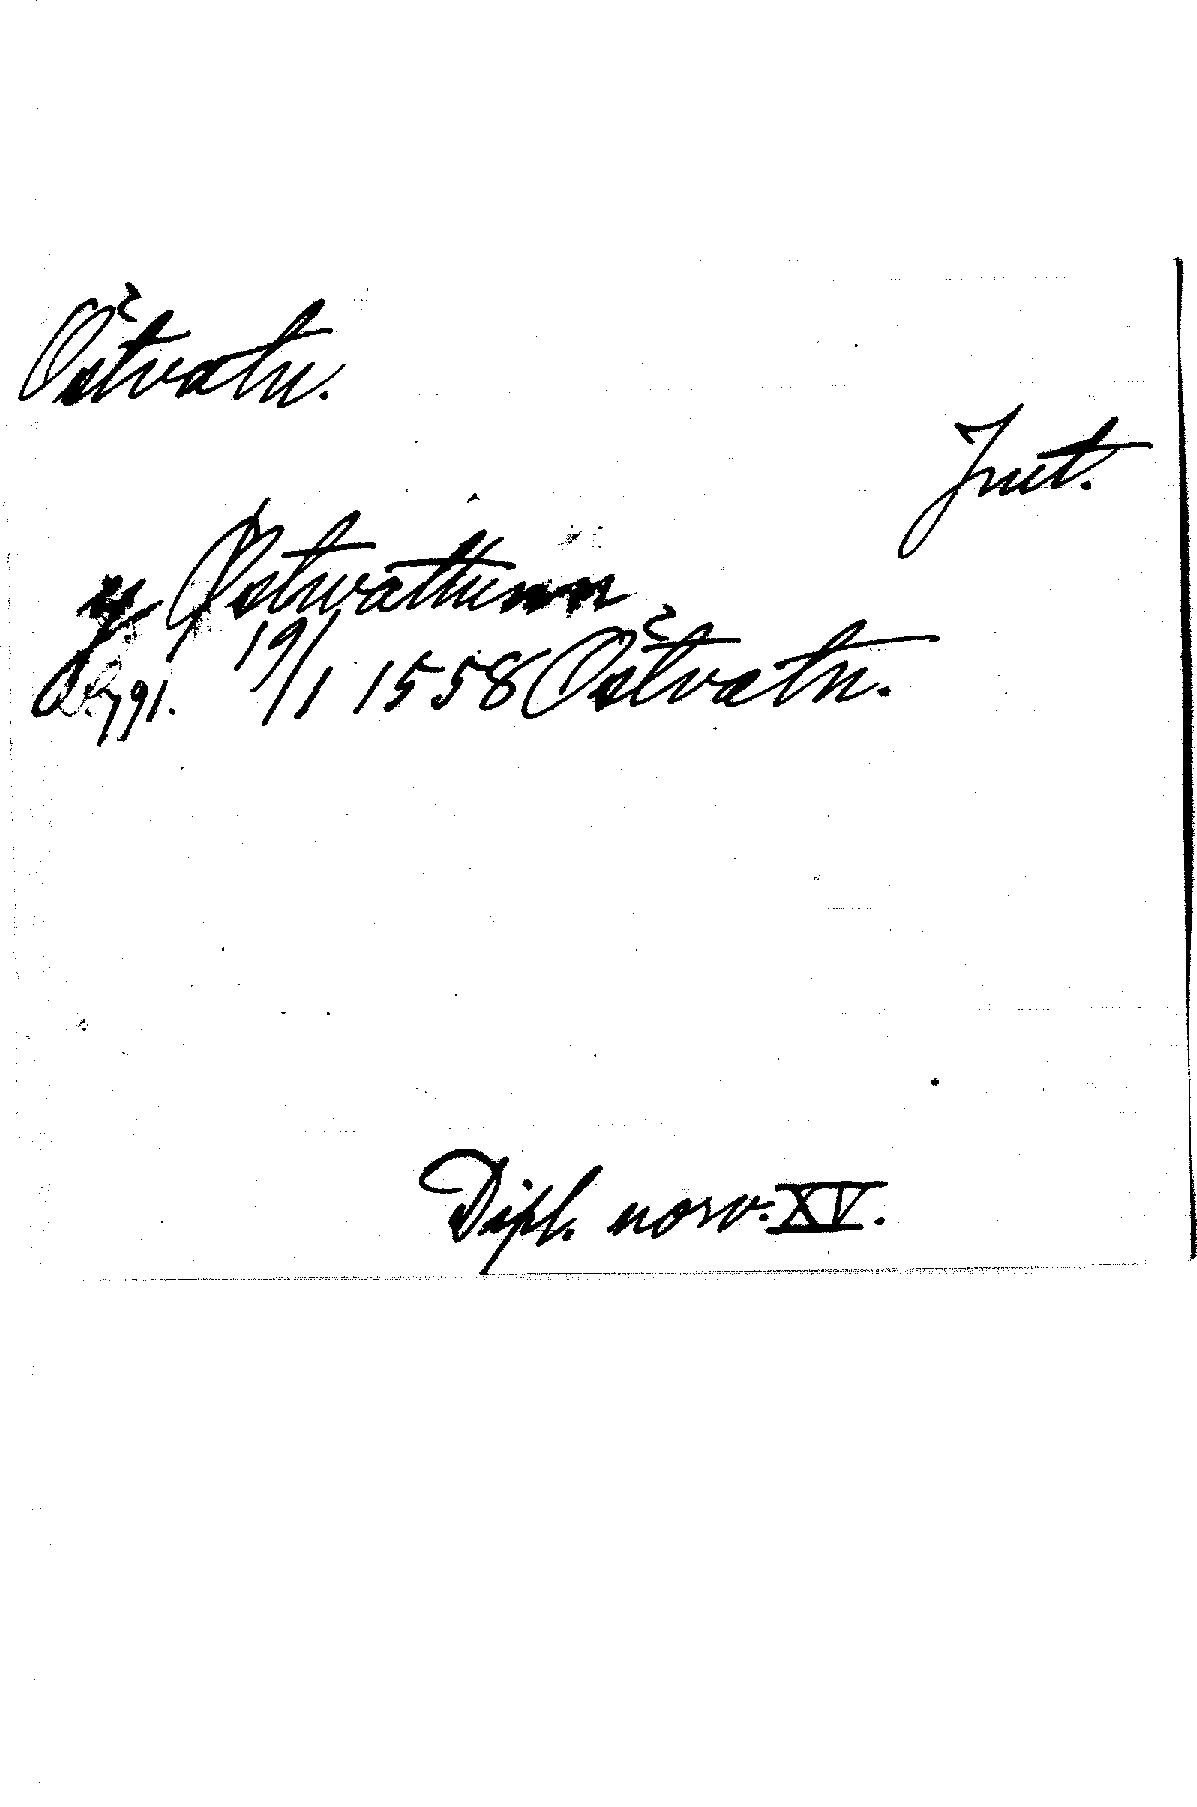 Östvatn.
Juet.
y Østwathenn
791. 19/1 1558 Östvatn.
Dipl. norv. XV.